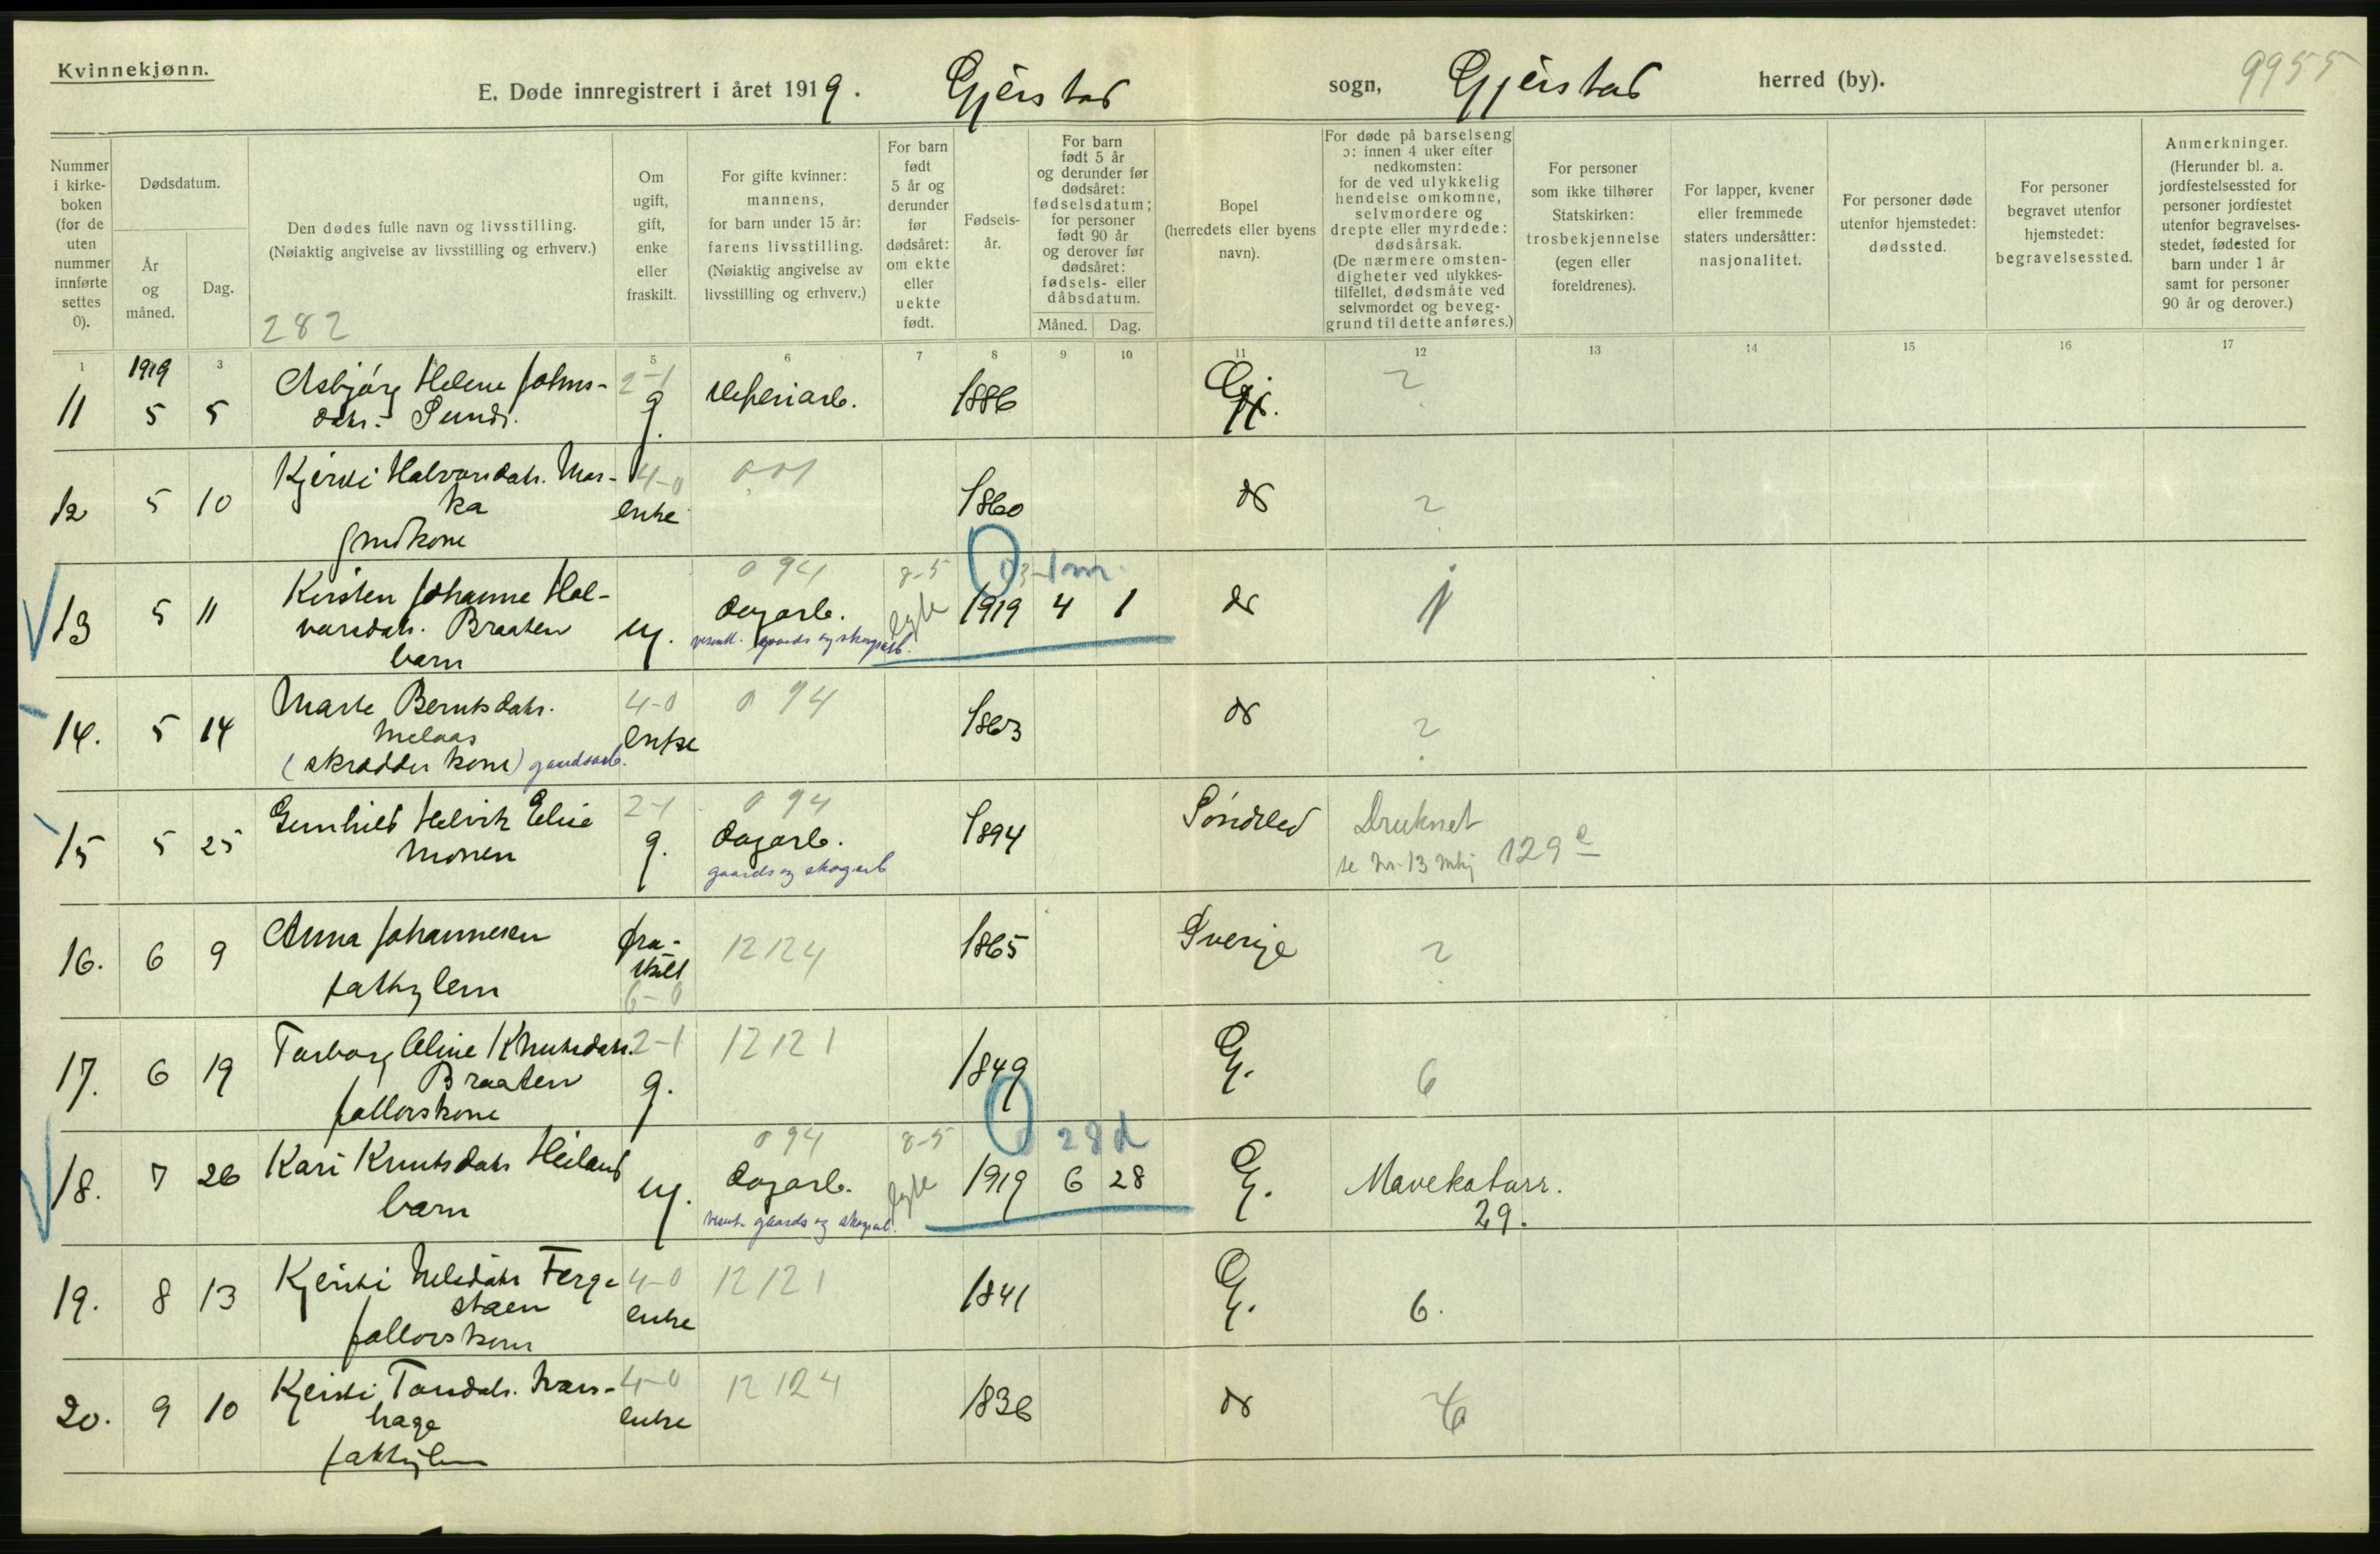 Kvinnekjønn.
E. Døde innregistrert i året 1919. Gjerstad sogn, Gjerstad herred (by).
9955
Nummer i kirke- boken (for de uten nummer innførte settes 0).
Dødsdatum.
År og måned.
Dag.
Den dødes fulle navn og livsstilling.
(Nøiaktig angivelse av livsstilling og erhverv.)
282
Om ugift, gift, enke eller fraskilt.
For gifte kvinner: mannens, for barn under 15 år: farens livsstilling. (Nøiaktig angivelse av livsstilling og erhverv.)
For barn født 5 år og derunder før dødsåret: om ekte eller uekte født.
Fødsels- år.
For barn født 5 år og derunder før dødsåret: fødselsdatum; for personer født 90 år og derover før dødsåret: fødsels- eller dåbsdatum.
Måned. Dag.
Bopel (herredets eller byens navn).
For døde på barselseng ɔ: innen 4 uker efter nedkomsten: for de ved ulykkelig hendelse omkomne, selvmordere og drepte eller myrdede: dødsårsak. (De nærmere omsten- digheter ved ulykkes- tilfellet, dødsmåte ved selvmordet og beveg- grund til dette anføres.)
For personer som ikke tilhører Statskirken: trosbekjennelse (egen eller foreldrenes).
For lapper, kvener eller fremmede staters undersåtter: nasjonalitet.
For personer døde utenfor hjemstedet: dødssted.
For personer begravet utenfor hjemstedet: begravelsessted.
Anmerkninger. (Herunder bl. a. jordfestelsessted for personer jordfestet utenfor begravelses- stedet, fødested for barn under 1 år samt for personer 90 år og derover.)
1 3 5 6 7 8 9 10 11 12 13 14 15 16 17
1919
Asbjørg Helene Johns- 2-1 ?
11 5 5 datr. Sunde. g. 1886 Gj.
Kjersti Halvorsdatr. Mos- 4-0 001
12 5 10 ka enke 1860 do ?
gmdkone
094 8-5 1 m
Kirsten Johanne Hal-
13 5 11 vorsdatr. Braaten ug. dagarb. egte 1919 4 1 do 1
barn gaards og skogsarb.
Marte Berntsdatr. 4-0 094
14. 5 14 Melaas enke 1863 do ?
(skrædder kone) gaardsarb.
Gunhild Helvik Eline 2-1 094 Søndeled Druknet
15 5 25 Monen g. dagarb. 1894 se Nr. 13 mkj 129 e
gaards og skogarb
Anna Johannesen fra- Sverige
16. 6 9 skilt 12124 1865 ?
fattiglem 6-0
Torborg Oline Knutsdatr. 2-1 12121
17. 6 19 Braaten g. 1849 G. 6
føllorskone
094 8-5 28 d
18. 7 26 Kari Knutsdatr Heiland ug. dagarb. egte 1919 6 28 G. Mavekatarr.
barn gaards og skogsarb. 29.
Kjersti Nilsdatr Ferge 4-0 12121
19. 8 13 staen enke 1841 G. 6.
føllorskone
Kjersti Tarsdatr. 4-0 12124
20. 9 10 hage enke 1836 do 6
fattiglem